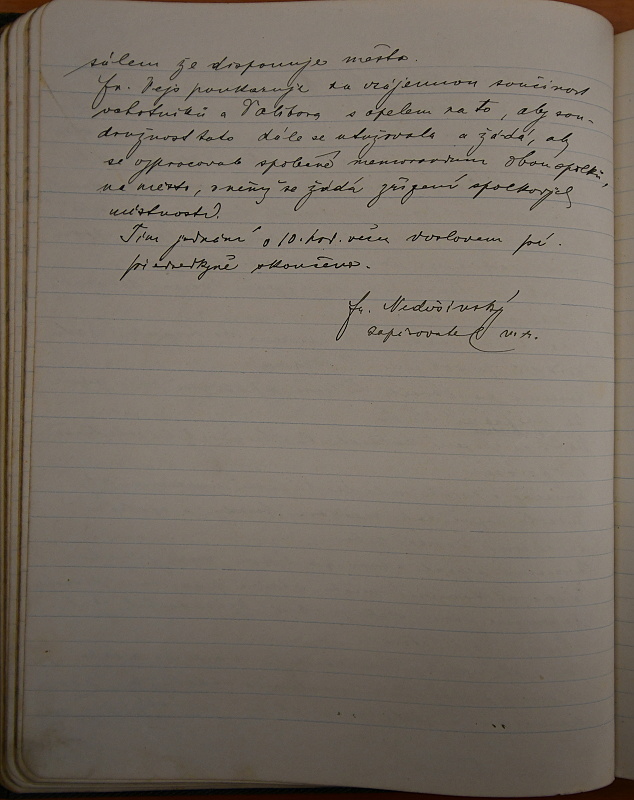 sálem že disponuje město.
Fr. Vejs poukazuje na vzájemnou součinost
ochotníků a Dalibora s apelem na to, aby sou-
družnost tato dále se utužovala a žádá, aby
se vypracovalo společné memorandum obou spolků,
na město, v němž se žádá zřízení spolkových
místností.
Tím jednání o 10. hod. več.
předsedkyně skončeno.
Fr.
zapisovatel v.r.